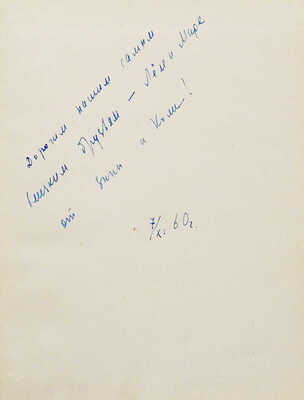 Дорогим нашим самым
близким друзьям – Лёле и Маре
от Зины и Коли!
7/X. 60г.